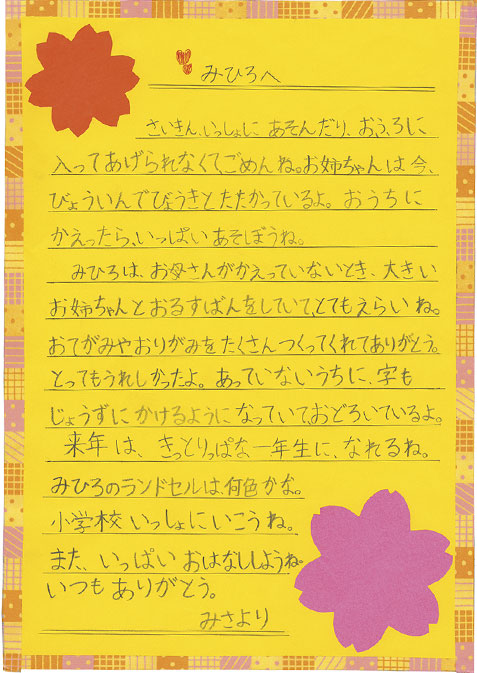 みひろへ
さいきん、いっしょに あそんだり、おふろに
入ってあげられなくて、ごめんね。お姉ちゃんは今、
びょういんでびょうきとたたかっているよ。おうちに
かえったら、いっぱいあそぼうね。
みひろは、お母さんがかえっていないとき、大きい
お姉ちゃんとおるすばんをしていて、とてもえらいね。
おてがみやおりがみをたくさんつくってくれてありがとう。
とってもうれしかったよ。あっていないうちに、字も
じょうずにかけるようになっていて、おどろいているよ。
来年は、きっとりっぱな一年生に、なれるね。
みひろのランドセルは、何色かな。
小学校いっしょにいこうね。
また、いっぱいおはなししようね。
いつもありがとう。
みさより